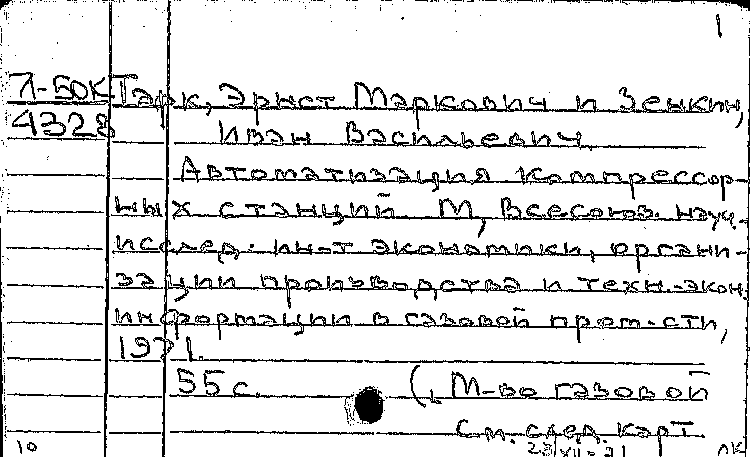 1
Л-50К Тарк, Эрнст Маркович и Зенкин,
4328 Иван Васильевич.
Автоматизация компрессор-
ных станций М, Всесоюз. науч.-
исслед. ин-т экономики, органи-
зации производства и техн.-экон.
информации в газовой пром-сти,
1971.
55 с. (М-во газовой
См. след. карт.
10 23/XII-71 ЛК